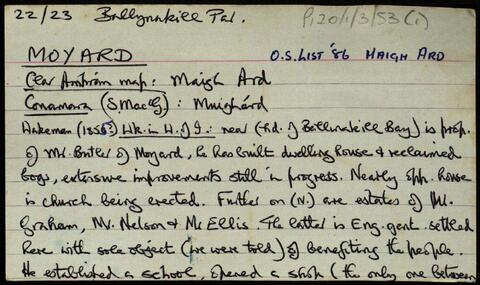 22/23 Ballynakill Par. P120/1/3/53 (1)
MOYARD O.S. LIST '86 MAIGH ARD
Clár Amhráin map: Maigh Ard
Conamara (S. Mac G.): Muighárd
Wakeman (1852) Wk. in W. of I: near (hd. of Ballinakill Bay) is prop.
of Mr. Butler of Moyard, he has built dwelling house & reclaimed
bogs, extensive improvements still in progress. Nearly opp. house
is church being erected. Further on (N.) are estates of Mr.
Graham, Mr. Nelson & Mr Ellis. The latter is Eng. gent. settled
here with sole object (we were told) of benefiting the people.
He established a school, opened a shop (the only one between